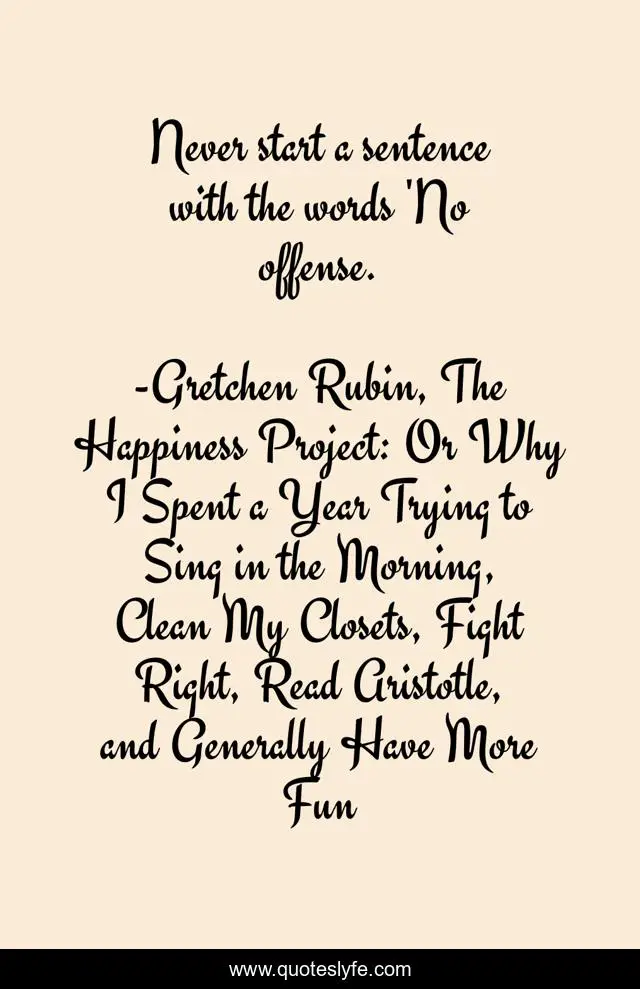 Never start a sentence
with the words 'No
offense.
-Gretchen Rubin, The
Happiness Project: Or Why
I Spent a Year Trying to
Sing in the Morning,
Clean My Closets, Fight
Right, Read Aristotle,
and Generally Have More
Fun
www.quoteslyfe.com